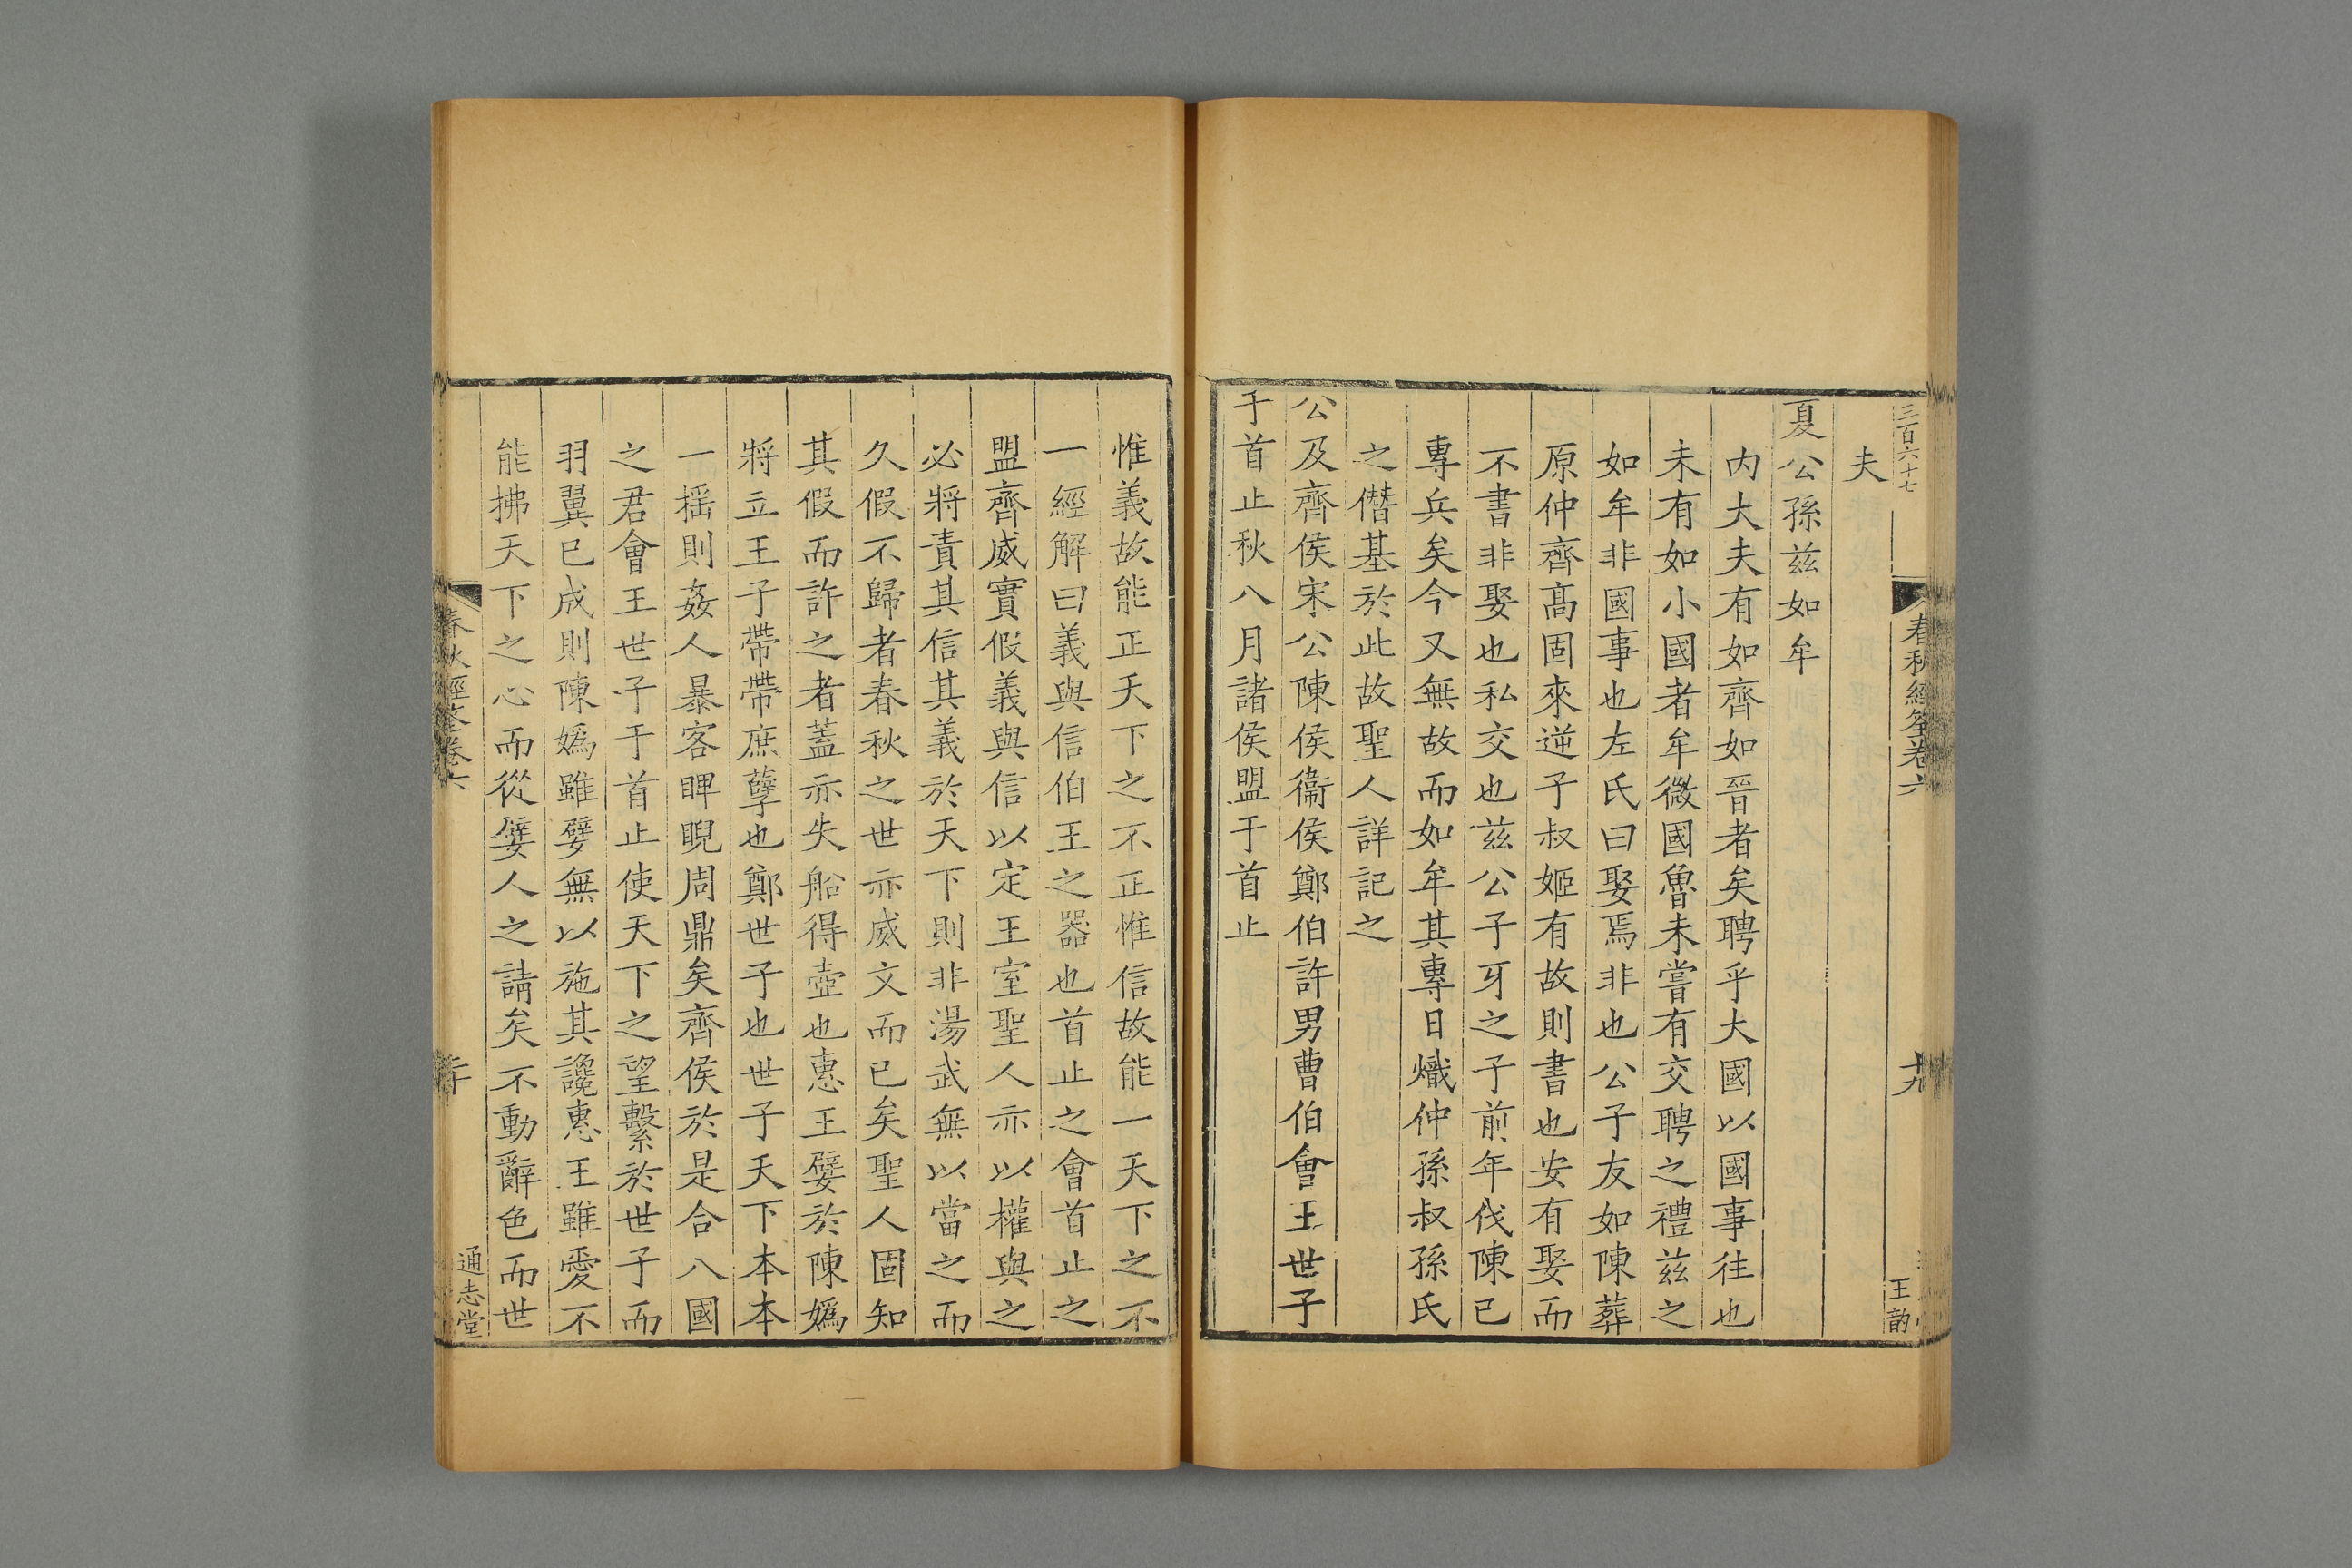 三百六十七
春秋經筌卷六
十九
王韵
夫
夏公孫兹如牟
内大夫有如齊如晉者矣聘乎大國以國事往也
未有如小國者牟微國魯未嘗有交聘之禮兹之
如牟非國事也左氏曰娶焉非也公子友如陳葬
原仲齊髙固來逆子叔姬有故則書也安有娶而
不書非娶也私交也兹公子牙之子前年伐陳已
專兵矣今又無故而如牟其專日熾仲孫叔孫氏
之僭基於此故聖人詳記之
公及齊侯宋公陳侯衞侯鄭伯許男曹伯會王世子
于首止秋八月諸侯盟于首止
惟義故能正天下之不正惟信故能一天下之不
一經解曰義與信伯王之器也首止之會首止之
盟齊威實假義與信以定王室聖人亦以權與之
必將責其信其義於天下則非湯武無以當之而
久假不歸者春秋之世亦威文而已矣聖人固知
其假而許之者蓋亦失船得壺也惠王嬖於陳嬀
將立王子帶帶庶孽也鄭世子也世子天下本本
一揺則姦人暴客睥睨周鼎矣齊侯於是合八國
之君會王世子于首止使天下之望繫於世子而
羽翼已成則陳嬀雖嬖無以施其讒惠王雖愛不
能拂天下之心而從嬖人之請矣不動辭色而世
春秋經筌卷六
二十
通志堂